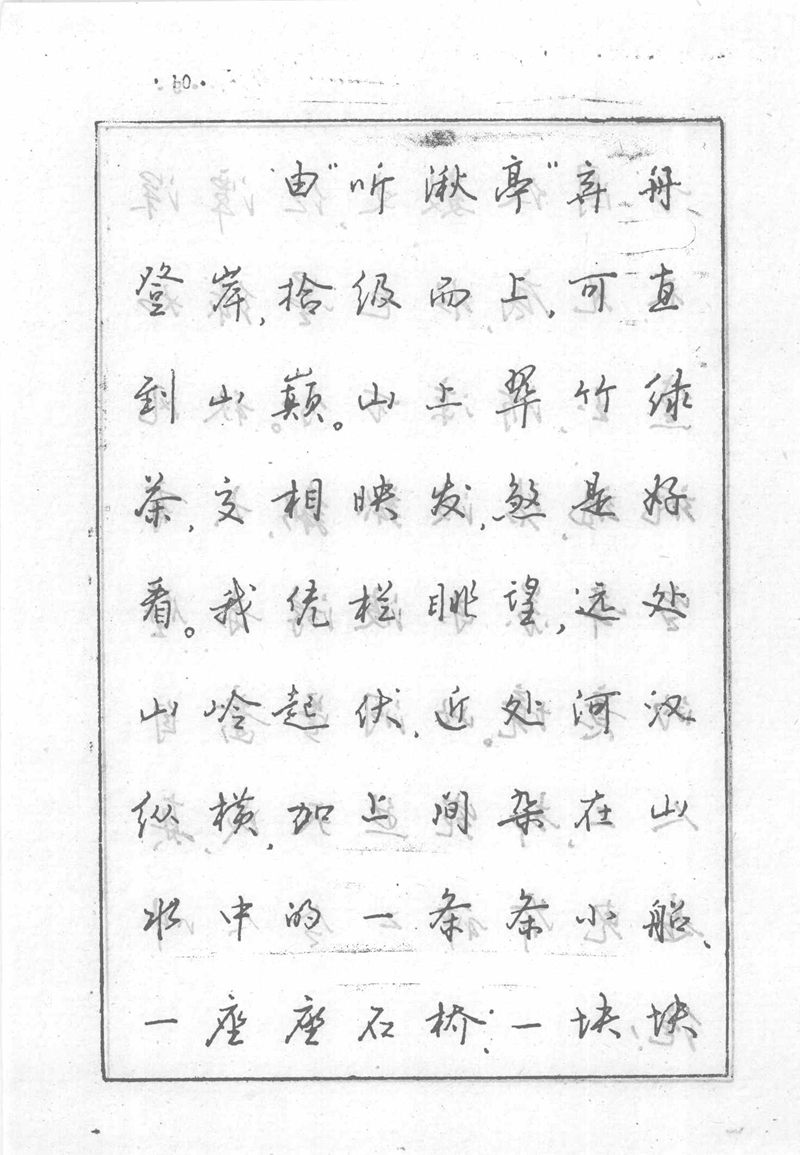 ·60·
由“听湫亭”弃舟
登岸,拾级而上,可直
到山巅。山上翠竹绿
茶,交相映发,煞是好
看。我凭栏眺望,远处
山岭起伏,近处河汊
纵横,加上间杂在山
水中的一条条小船、
一座座石桥、一块块